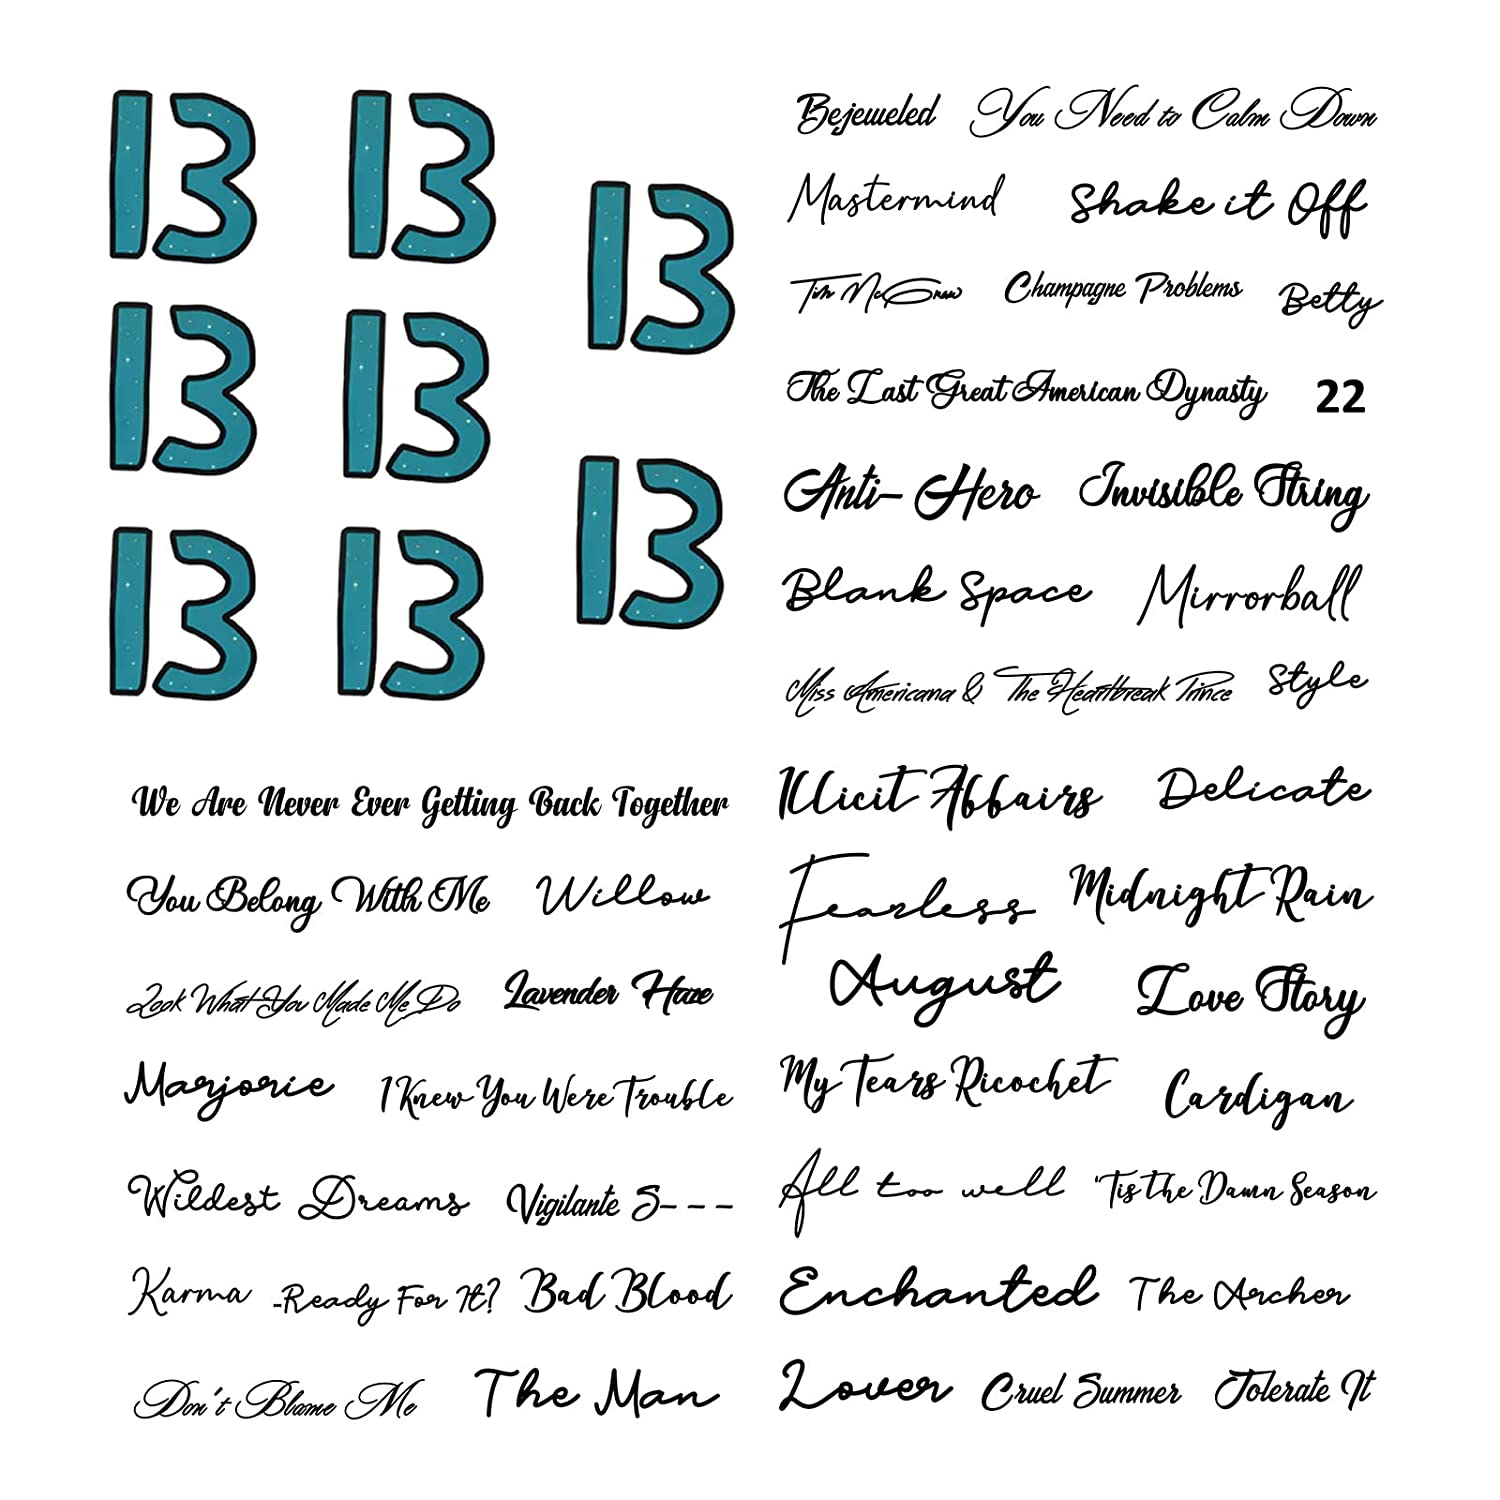 13 13
13
13 13
13
13 13
We Are Never Ever Getting Back Together
You Belong With Me Willow
Look What You Made Me Do Lavender Haze
Marjorie I Knew You Were Trouble
Wildest Dreams Vigilante S---
Karma -Ready For It? Bad Blood
Don't Blame Me The Man
Bejeweled You Need to Calm Down
Mastermind Shake it Off
Tim McGraw Champagne Problems Betty
The Last Great American Dynasty 22
Anti-Hero Invisible String
Blank Space Mirrorball
Miss Americana & The Heartbreak Prince Style
Illicit Affairs Delicate
Fearless Midnight Rain
August Love Story
My Tears Ricochet Cardigan
All too well 'Tis the Damn Season
Enchanted The Archer
Lover Cruel Summer Tolerate It